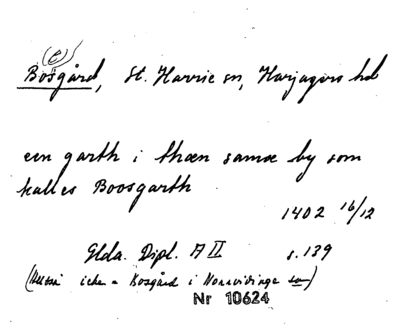 (e)
Bosgård, St. Harrie sn, Harjagers hd
een garth i thæn samæ by som
kalles Boosgarth
1402 16/12
Glda. Dipl. A II s. 139
( icke = Bosgård i Norrvidinge sn)
Nr 10624